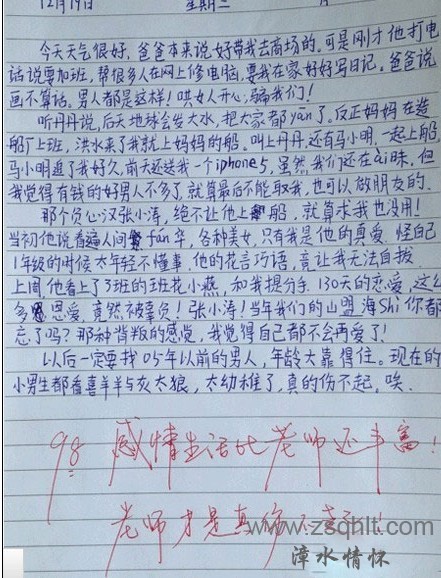 12月19日 星期三
今天天气很好,爸爸本来说好带我去商场的。可是刚才他打电
话说要加班,帮很多人在网上修电脑,要我在家好好写日记。爸爸说
画不算话。男人都是这样!哄女人开心,骗我们!
听丹丹说,后天地林会发大水,把大家都yān了。反正妈妈在造
船厂上班,洪水来了我就上妈妈的船。叫上丹丹,还有马小明,一起上船,
马小明追了我好久,前天还送我一个iphone5,虽然我们还在ài昧,但
我觉得有钱的好男人不多了,就算最后不能取我,也可以做朋友的。
那个负心汉张小涛,绝不让他上船,就算求我也没用!
当初他说看遍人间fán华,各种美女,只有我是他的真爱.怪自己
1年级的时候太年轻不懂事.他的花言巧语,竟让我无法自拔
上周,他看上了3班的班花小燕,和我提分手.130天的恋爱,这么
多恩爱,竟然被辜负!张小涛!当年我们的山盟海Shi你都
忘了吗?那种背叛的感觉,我觉得自己都不会再爱了!
以后一定要找05年以前的男人,年龄大靠得住。现在的
小男生都看喜羊羊与灰太狼,太幼稚了,真的伤不起。唉
98 感情生活比老师还丰富!
老师才是真伤不起!
www.zsqhlt.com
漳水情怀